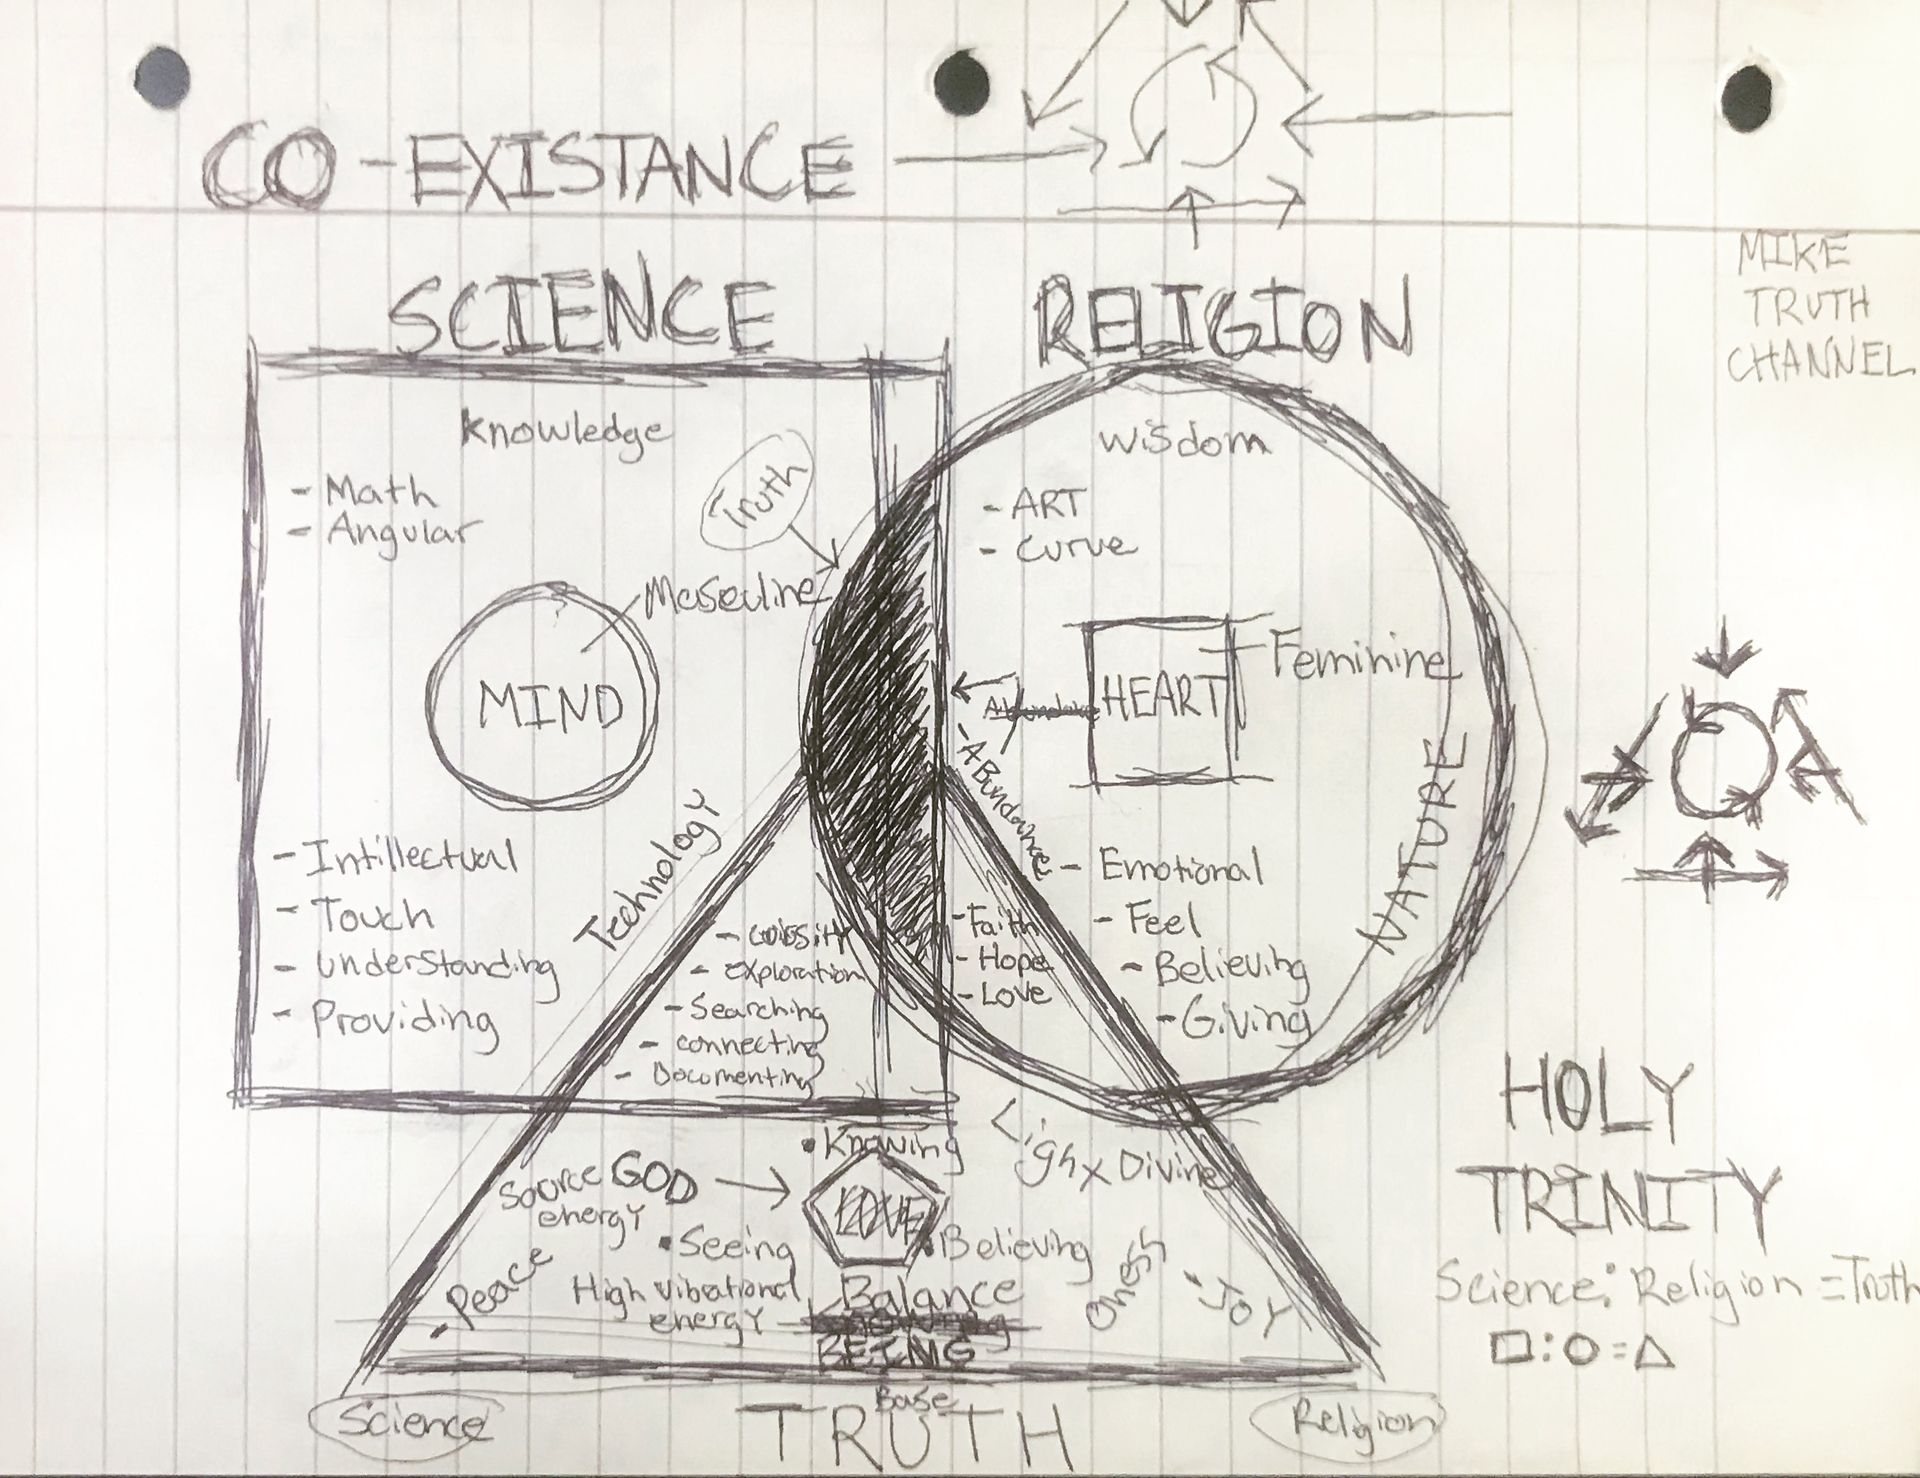 CO-EXISTANCE
MIKE
TRUTH
CHANNEL
SCIENCE
RELIGION
Knowledge
wisdom
- Math
- Angular
Truth
- ART
- curve
Masculine
MIND
HEART
Feminine
- Abundance
NATURE
Technology
- Intillectual
- Touch
- Understanding
- Providing
- Exploration
- Searching
- connecting
- Documenting
- Faith
- Hope
- Love
- Emotional
- Feel
- Believing
- Giving
HOLY
TRINITY
Science : Religion = Truth
□:○=△
• Knowing
Light Divine
Source GOD
energy
LOVE
• Seeing
• Believing
• Peace
High vibrational
energy
Balance
BEING
Oness
• JOY
Base
Science
TRUTH
Religion